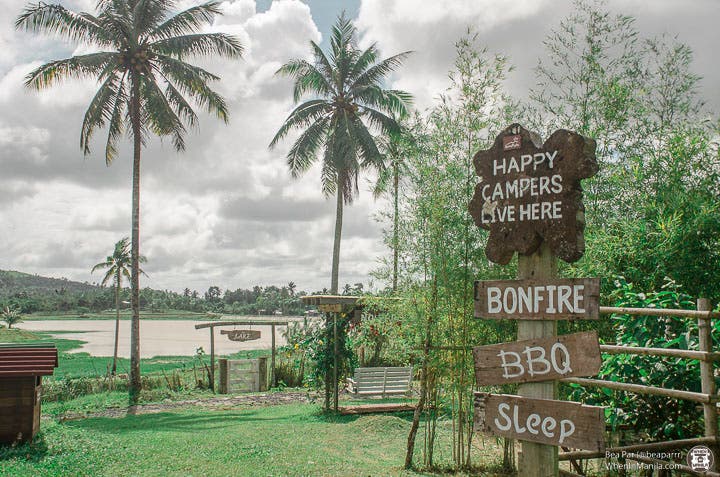 HAPPY
CAMPERS
LIVE HERE
BONFIRE
BBQ
Sleep
LAKE
Bea Par (@beaparr),
WhenInManila.com